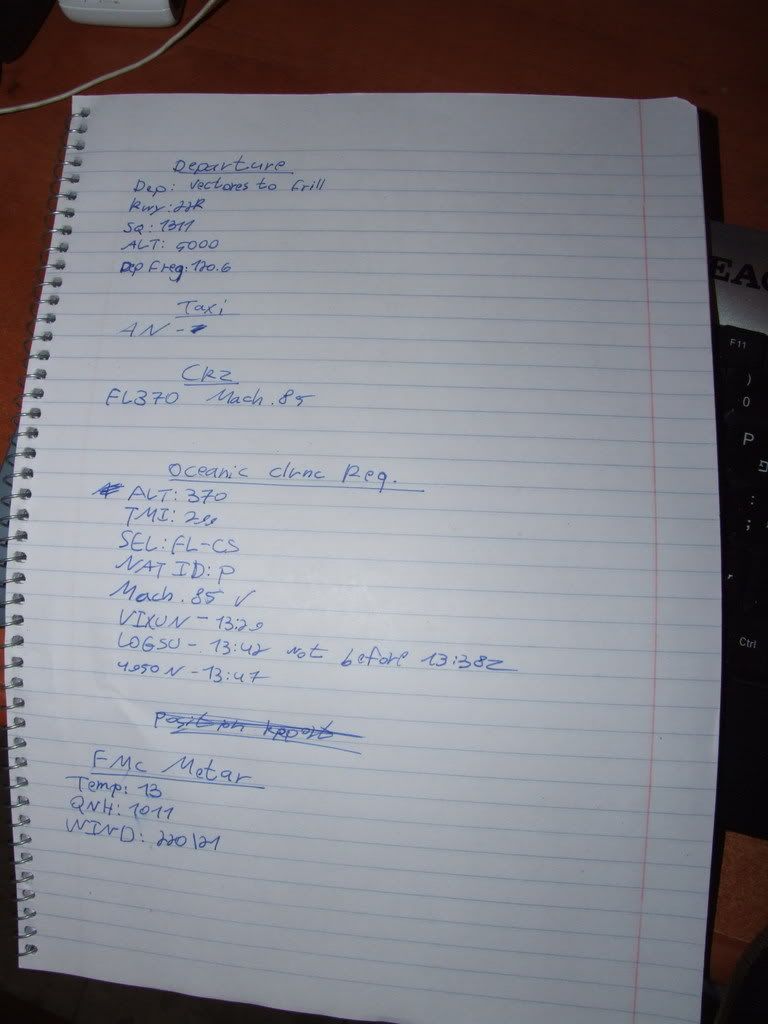 Departure
Dep: Vectores to Frill
Rwy: 22R
SQ: 1311
ALT: 5000
Dep Freq: 120.6
Taxi
AN -
CRZ
FL370 Mach .85
Oceanic clrnc Req.
ALT: 370
TMI:
SEL: FL-CS
NAT ID: P
Mach .85 √
VIXUN - 13:29
LOGSU - 13:42 not before 13:38Z
4950N - 13:47
FMC Metar
Temp: 13
QNH: 1011
WIND: 220\21
EAC
F11
)
0
P
:
;
Ctrl